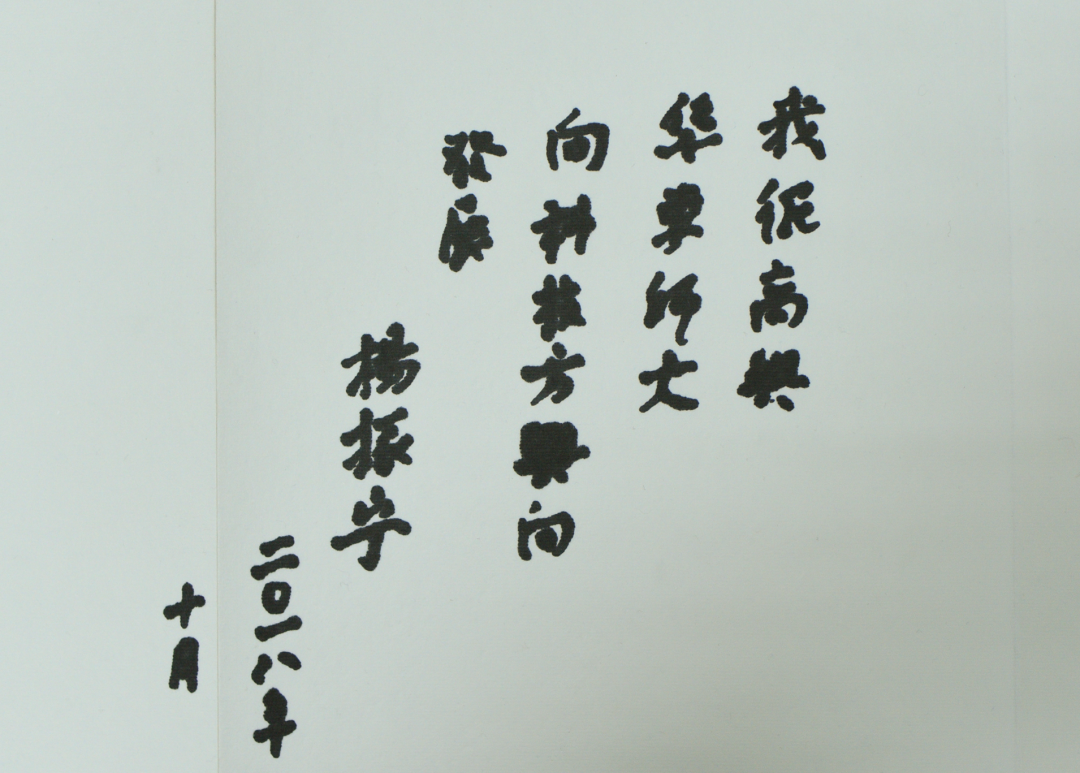 我很高興
华東師大
向科技方向
發展
楊振宁
二〇一八年
十月